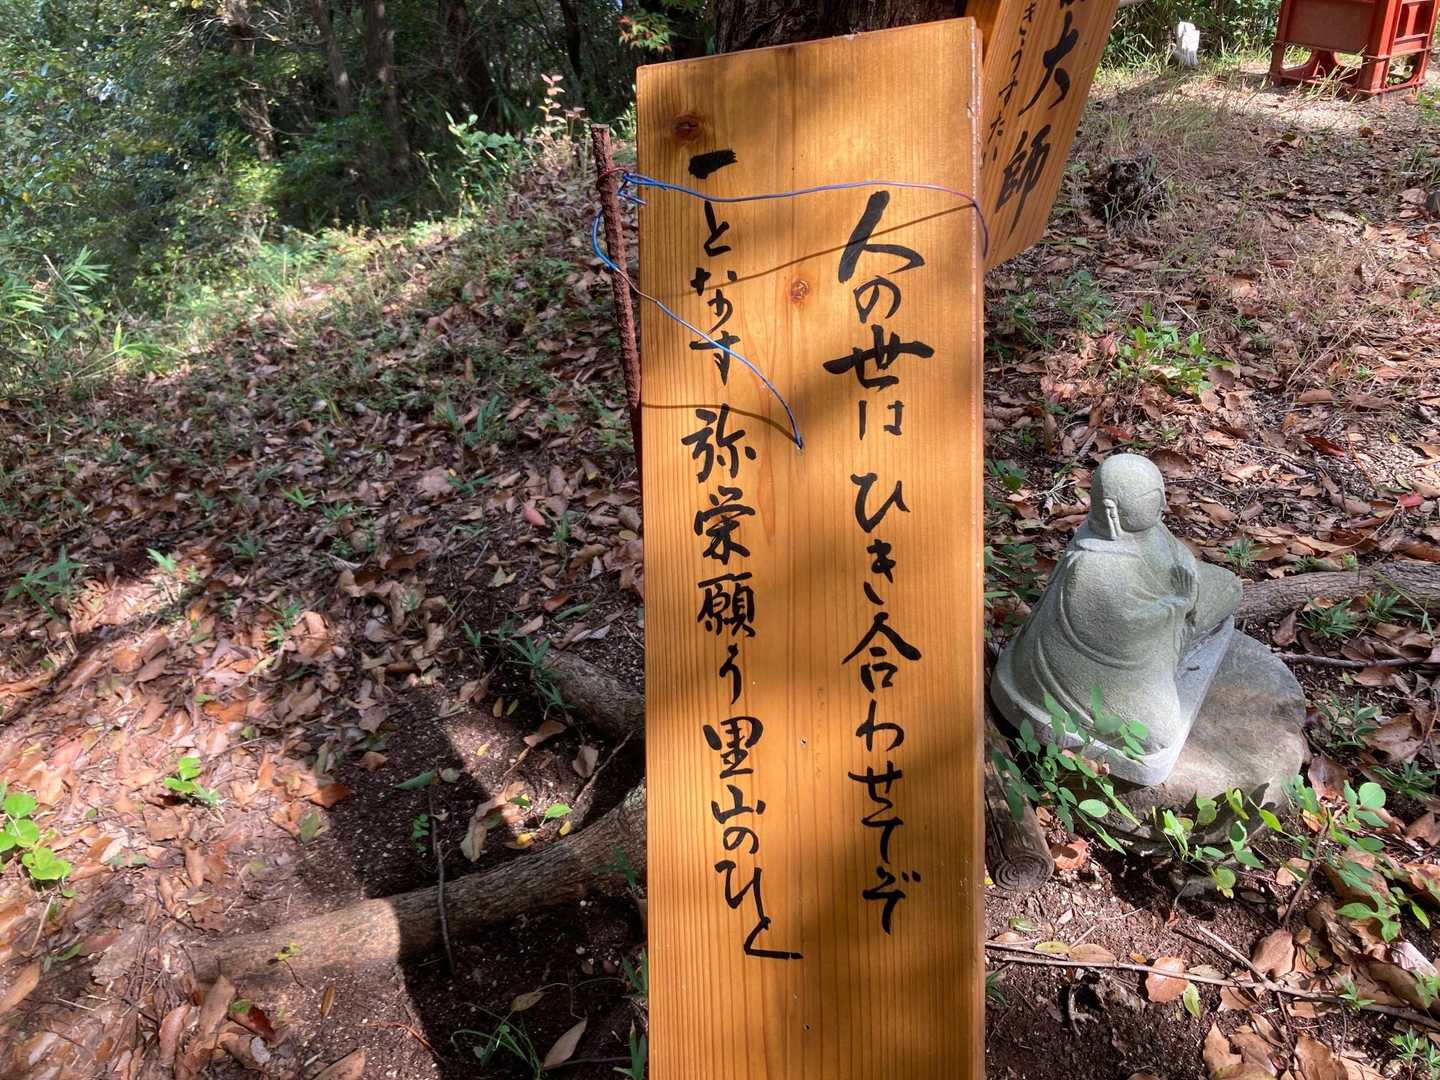 人の世は ひき合わせてぞ
一となす 弥栄願う里山のひと
大師
きっすたい